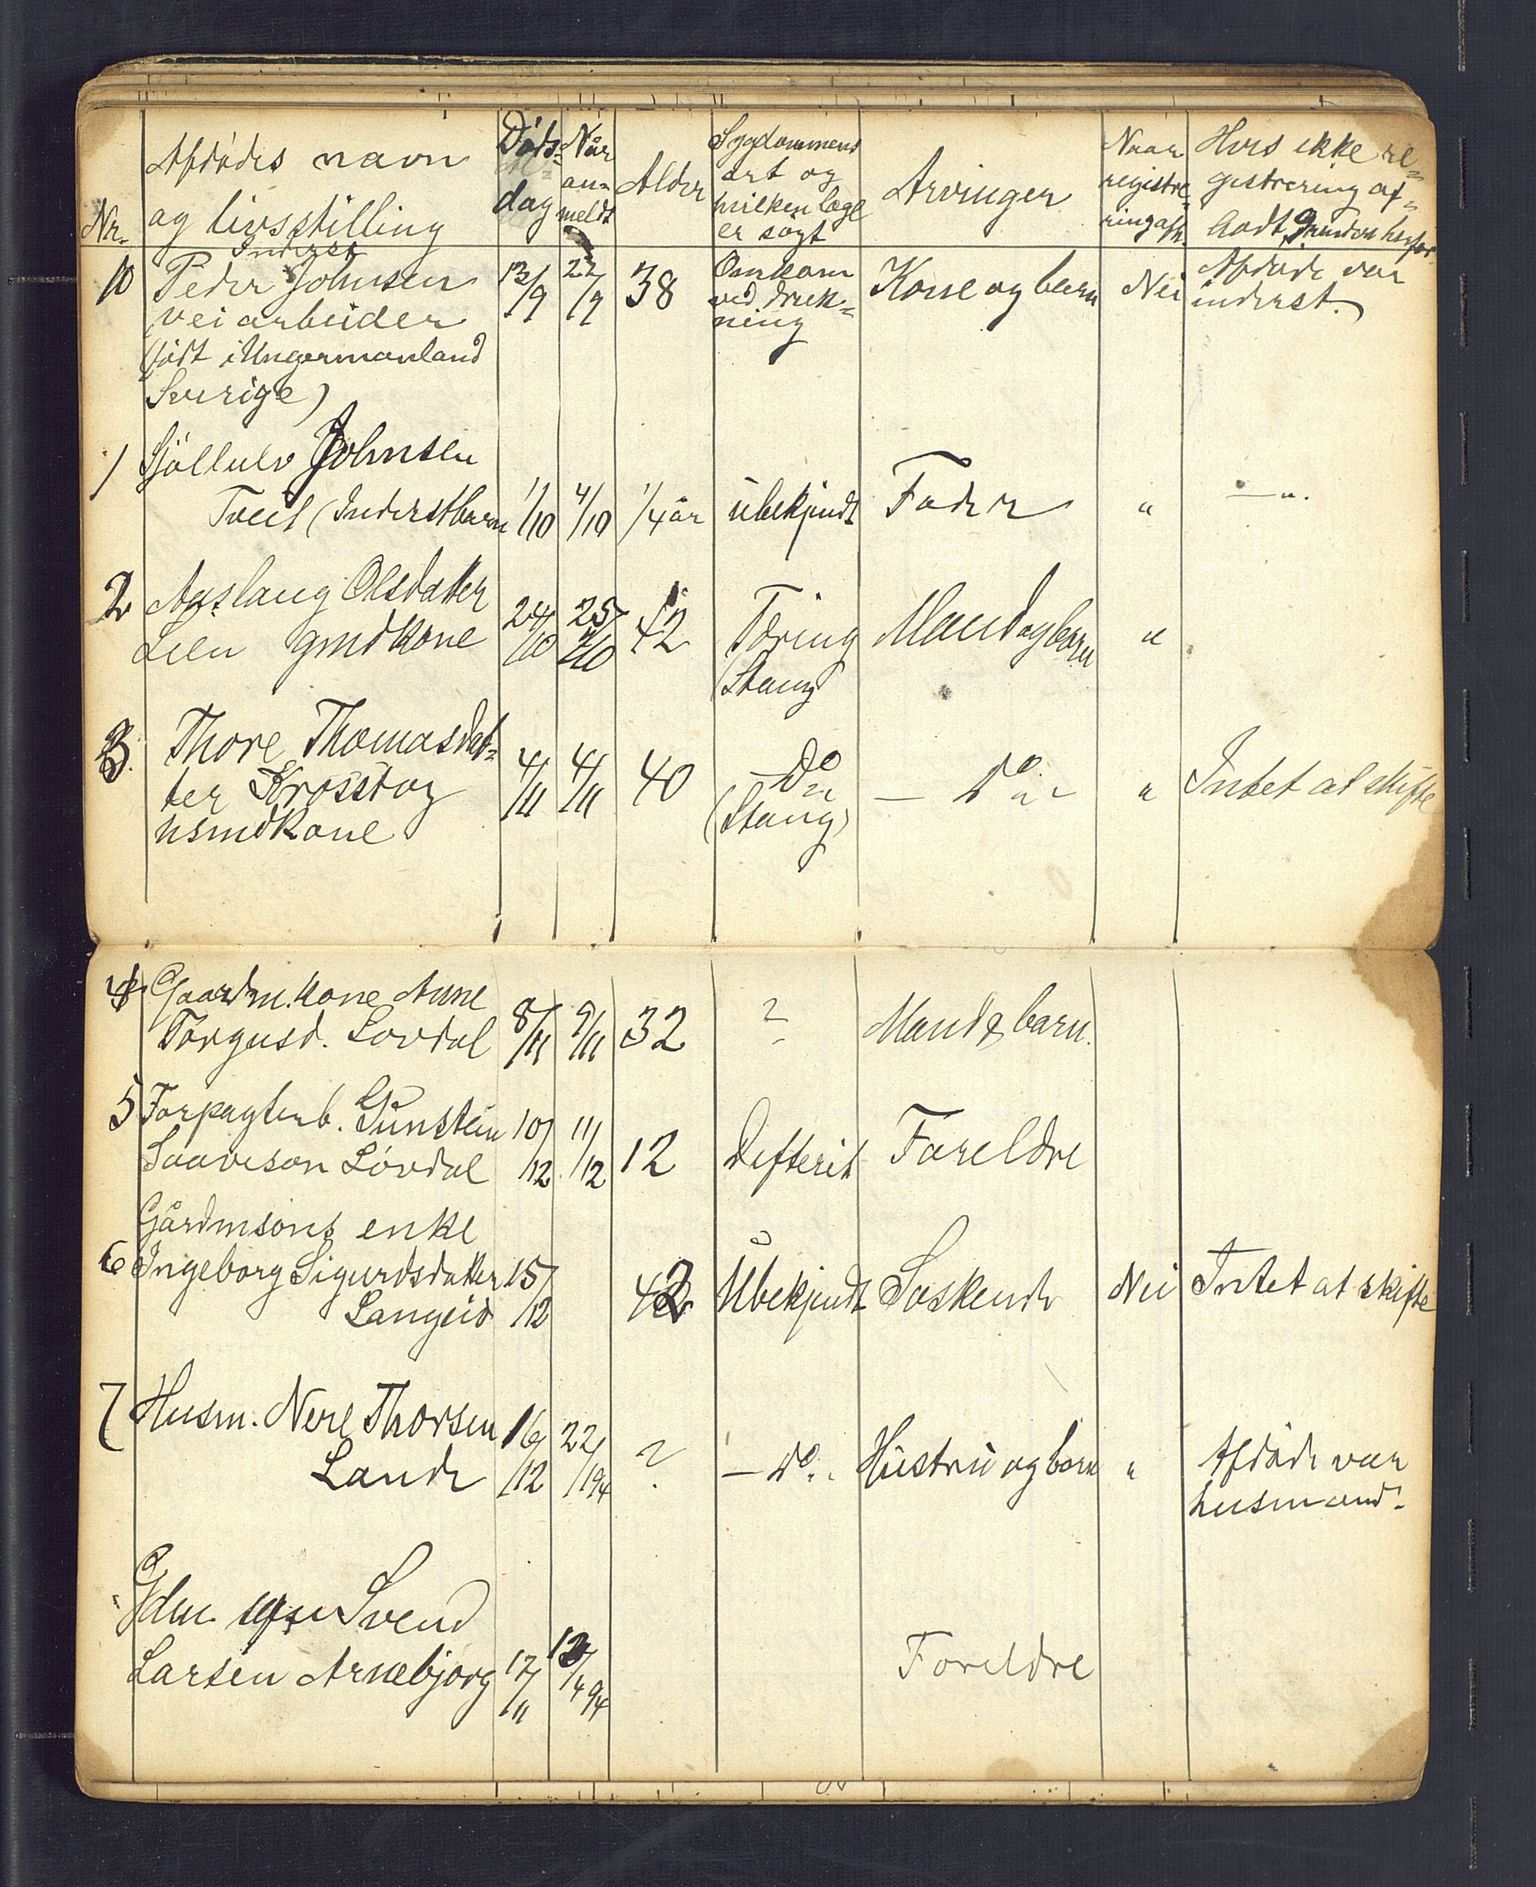 Nr. Afdødes navn og livsstilling Døds- dag Når an- meldt Alder Sygdommens art og hvilken læge er søgt Arvinger Naar registre- ring afh. Hvis ikke re- gistrering af- holdt, Grunden herfor
Inderst
10 Peder Johnsen 13/9 22/9 38 Omkom Kone og barn Nei Afdøde var
veiarbeider ved druk- inderst.
(født i Ungermanland ning
Sverige)
1 Johnsen
Tveit (Inderstbarn 1/10 4/10 1/4 år ubekjendt Fader " — " .
2 Aaslaug Olsdatter 24/10 25/10 42 Tæring Mand og barn "
Lien gmdkone (Stang)
3. Thore Thomasdat- 4/11 4/11 40 — Do — do " Intet at skifte
ter Krosstøy (Stang)
husmdkone
4. Gaardm. kone Anne
Torgusd. Lovdal 8/11 9/11 32 ? Mand & barn.
5 Forpagterb. Gunstein 10/12 11/12 12 Defterit Foreldre
Saaveson Løvdal
Gårdmsøns enke
6 Ingeborg Sigurdsdatter 15/12 42 Ubekjendt Søskende Nei Intet at skifte
Langeid
7 Husm. Nere Thorsen 16/12 22/1 94 ? — do Hustru og barn " Afdøde var
Lande husmand.
Gdm. Svend
Larsen Arnebjorg 17/11 12/4 94 Foreldre